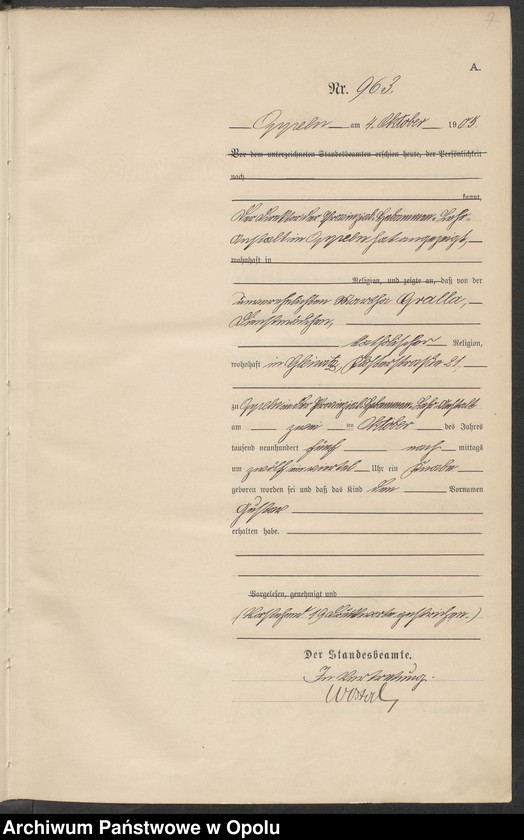 7
A.
Nr. 963.
Oppeln am 4. Oktober 1905.
Vor dem unterzeichneten Standesbeamten erschien heute, der Persönlichkeit
nach
kannt,
Der Direktor der Provinzial-Hebammen-Lehr-
Anstalt in Oppeln hat angezeigt,
wohnhaft in
Religion, und zeigte an, daß von der
unverehelichten Martha Gralla,
Dienstmädchen,
katholischer Religion,
wohnhaft in Gleiwitz, straße 21
zu Oppeln in der Provinzial-Hebammen-Lehr-Anstalt
am zwei ten Oktober des Jahres
tausend neunhundert fünf nach mittags
um zwölf einviertel Uhr ein Knabe
geboren worden sei und daß das Kind den Vornamen
Gustav
erhalten habe.
Vorgelesen, genehmigt und
(Vorstehend 19 Druckworte gestrichen.)
Der Standesbeamte.
In Vertretung.
Wostal
Archiwum Państwowe w Opolu